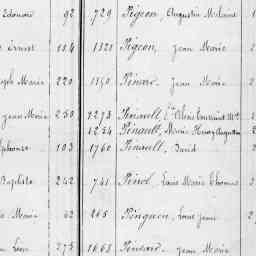 Edouard 92 729 Pigeon, Augustin
Ernest 184 1321 Pigeon, Jean Marie
Joseph Marie 220 1150 Jean Marie
Jean Marie 250 1273 Pinault,
1254 Pinault, Marie Henry Augustin
Alphonse 103 1760 Pinault, David
Baptiste 242 741 Pinel, Louis Marie Thomas
Marie 62 265 Pinguen, Louis Jean
Léon 275 1668 Jean Marie